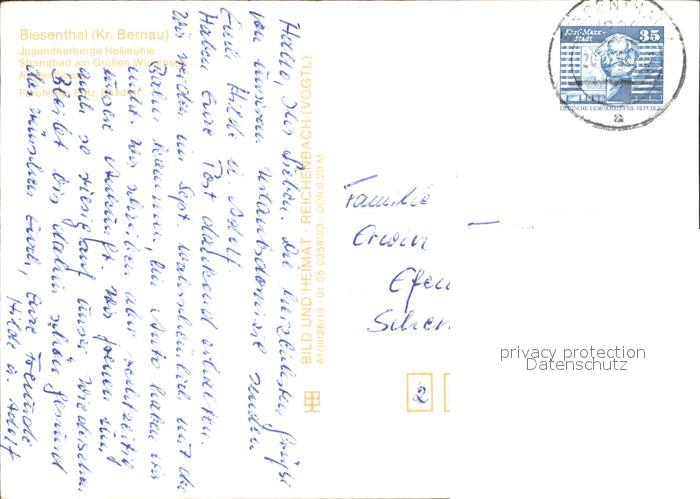 Biesenthal (Kr. Bernau)
Jugendherberge Hellmühle
Strandbad am Großen Wukensee
Hallo, Ihr Lieben. Die herzlichsten Grüße
von unserem Urlaubsdomizil senden
Euch Hilde u. Adolf.
Haben Eure Post dankend erhalten.
Wir werden im Sept. wahrscheinlich mit der
Bahn kommen, ein Auto haben wir
nicht. Wir schreiben aber rechtzeitig
unsere Ankunft. Wir freuen uns
auch so riesig auf unser Wiedersehen.
Bleibt bis dahin schön gesund
das wünschen Euch, Eure Freunde
Hilde u. Adolf
BILD UND HEIMAT · REICHENBACH (VOGTL)
A1/III/26/13 · 01 05 0359/03 · DDR 0,20 M
Karl-Marx-
Stadt
35
DEUTSCHE DEMOKRATISCHE REPUBLIK
a
Familie
Erwin
2
privacy protection
Datenschutz